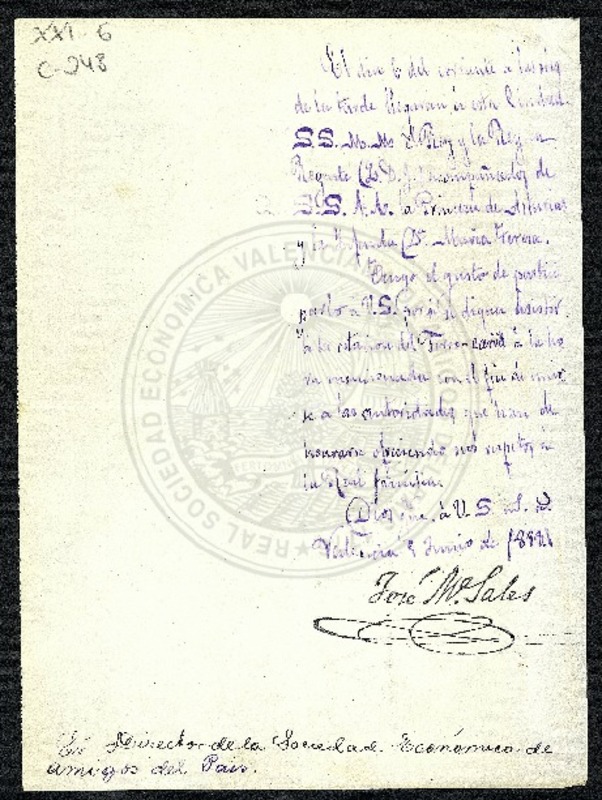 XXI 6
C-248
El dia 6 del corriente a las seis
de la tarde llegaran á esta Ciudad
S.S. M.M. El Rey y la Reyna
Regente (Q.D.G.) acompañados de
S.S. A.A. la Princesa de Asturias
y la Infanta Dª Maria Teresa.
Tengo el gusto de partici
parlo a V.S. por si se digna asistir
á la estacion del Ferro-carril á la ho
ra mencionada con el fin de unir
se a las autoridades que han de
honrarse ofreciendo sus respetos á
la Real familia.
Dios gue. á V.S. m.s a.s
Valencia Junio de
José Mª Sales
Sr. Director de la Sociedad Económica de
amigos del Pais.
REAL SOCIEDAD ECONÓMICA VALENCIANA